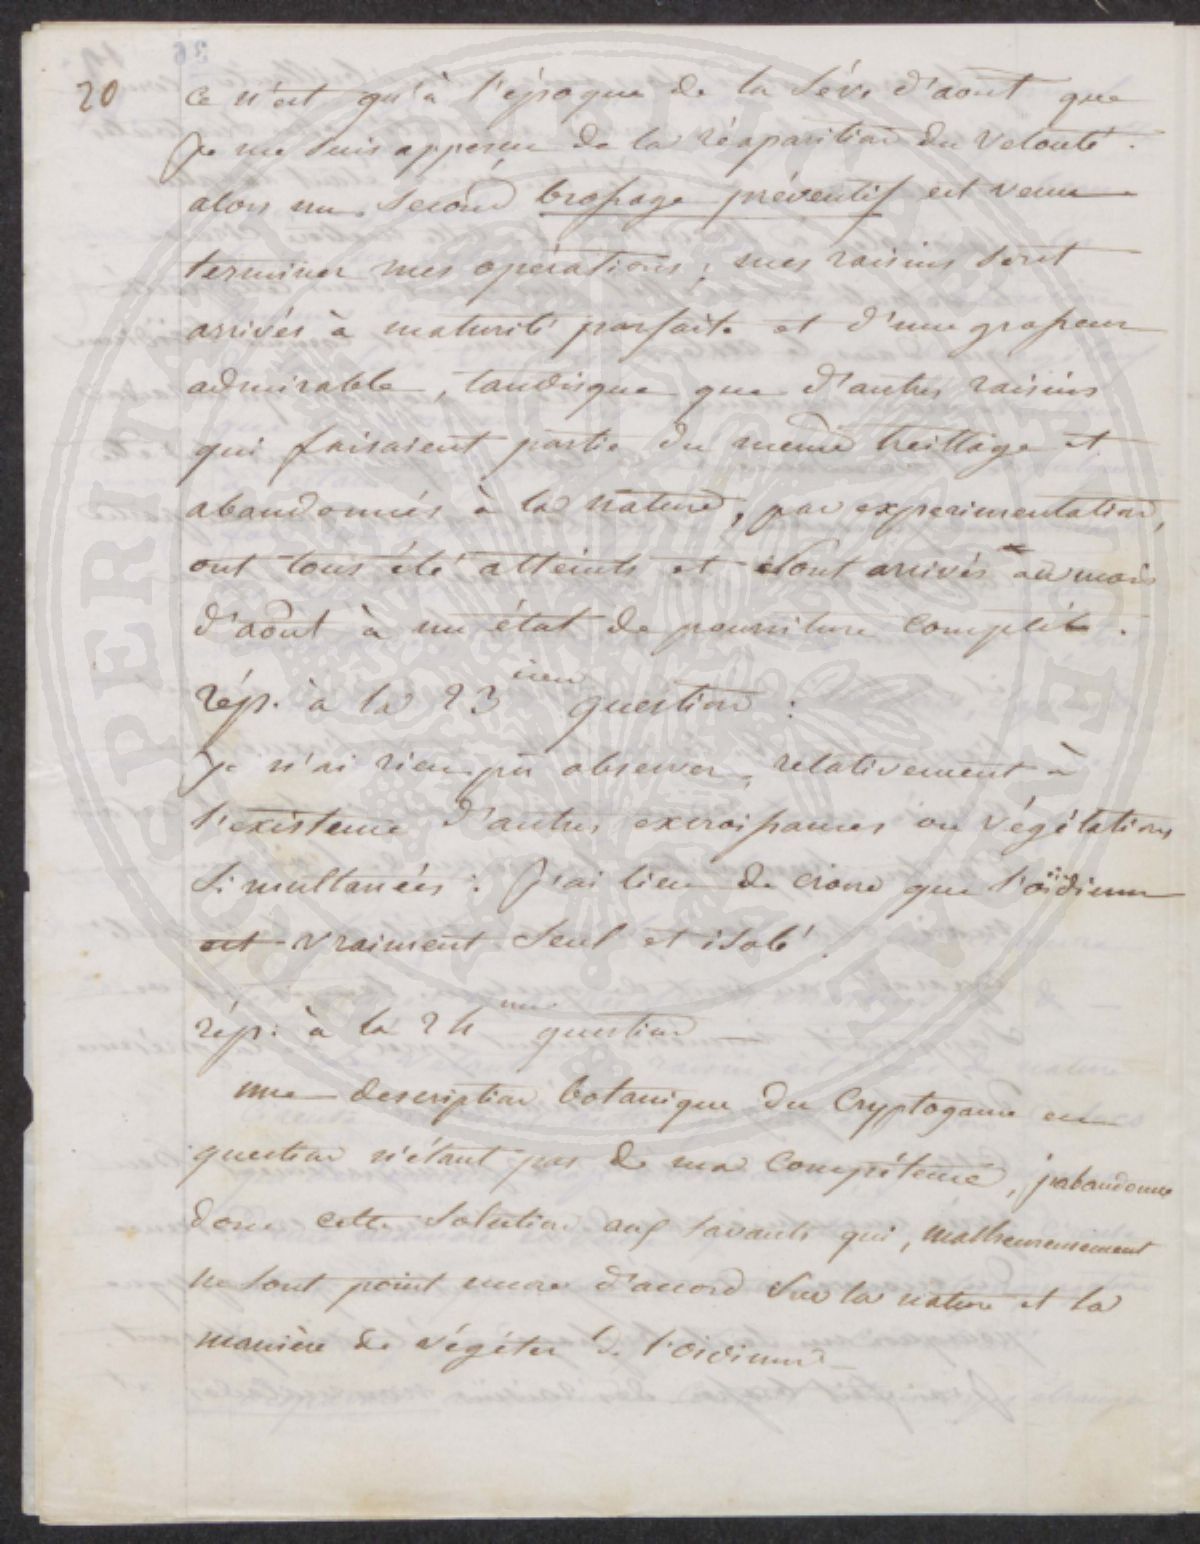 20
ce n'est qu'à l'époque de la séve d'aout que
je me suis apperçu de la réaparition du velouté.
alors un second brossage préventif est venu
terminer mes opérations, mes raisins sont
arrivés à maturité parfaite et d'une grosseur
admirable, tandisque que d'autres raisins
qui faisaient partie du meme treillage et
abandonnés à la nature, par experimentation,
ont tous été atteints et sont arrivés au mois
d'août à un état de pourriture complète.
rép. à la 23 ieme question :
je n'ai rien pu observer, relativement à
l'existence d'autres excroissances ou végétations
simultanées. J'ai lieu de croire que l'oïdium
est vraiment seul et isolé.
rép. à la 24 me question
une description botanique du Cryptogame en
question n'étant pas de ma compétence, j'abandonne
donc cette solution aux savants qui, malheureusement
ne sont point encore d'accord sur la nature et la
manière de végéter de l'oidium
SPERITATI PUBLICAE AUGENDAE